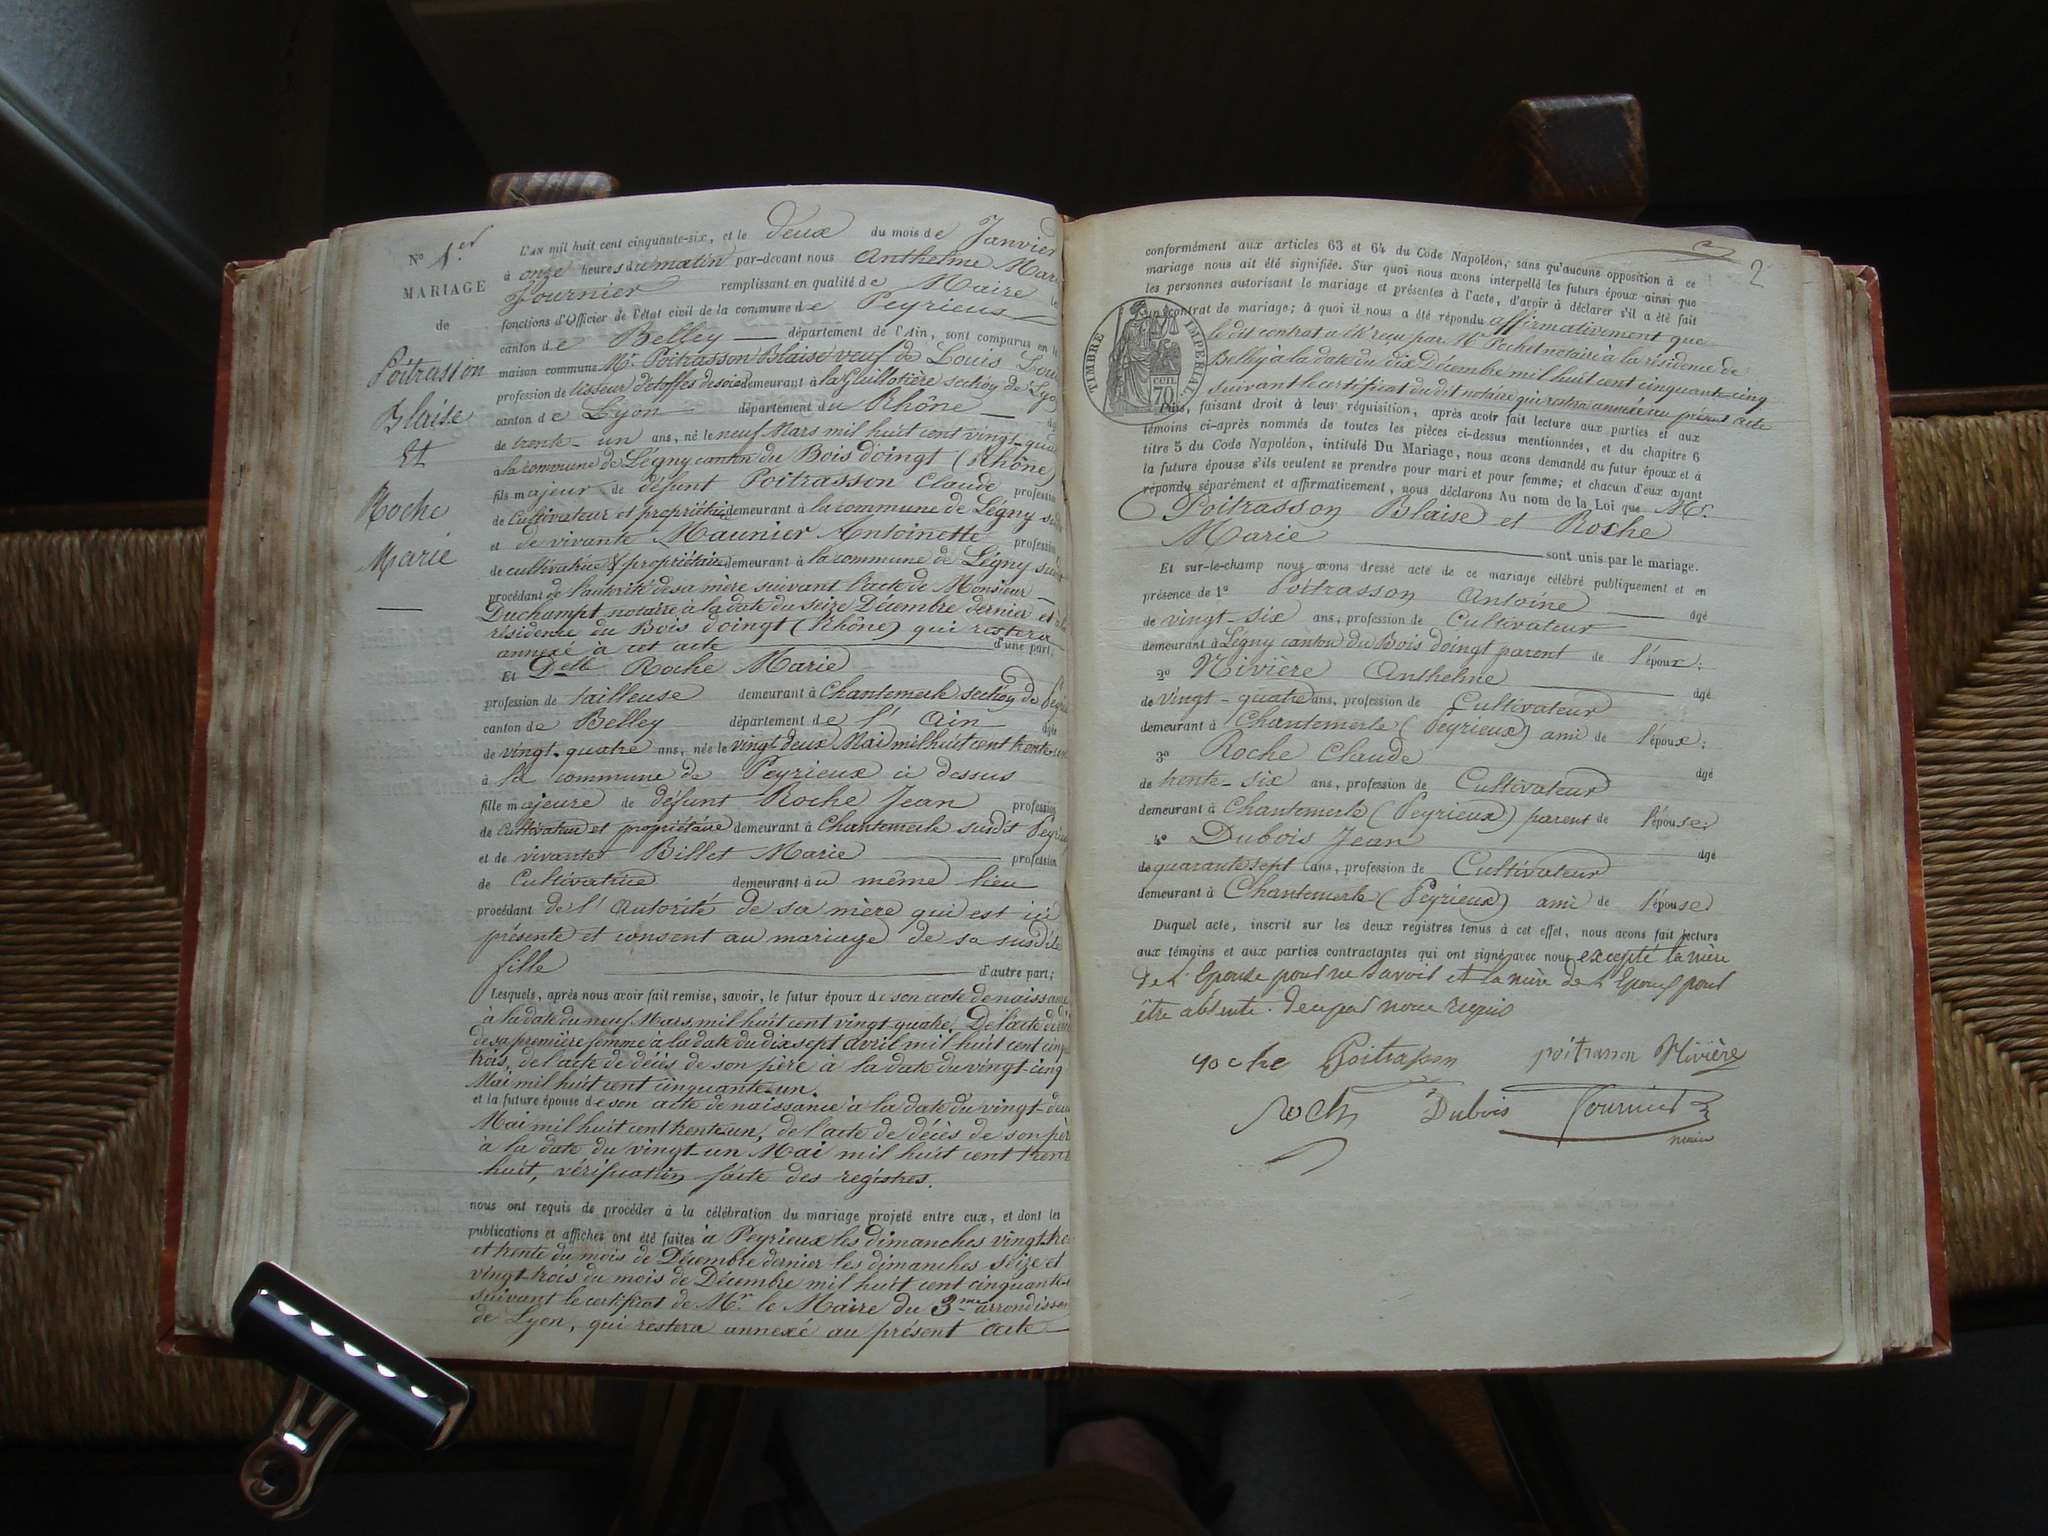 N° 1.er
MARIAGE
de
Poitrasson
Blaise
Et
Roche
Marie
L'AN mil huit cent cinquante-six, et le deux du mois de Janvier
à onze heures du matin par-devant nous Anthelme Mari
Fournier remplissant en qualité de Maire le
fonctions d'Officier de l'état civil de la commune de Peyrieux
canton de Belley département de l'Ain, sont comparus en la
maison commune Mr. Poitrasson Blaise veuf de Louis
profession de tisseur d'étoffes de soie demeurant à la Guillotière section de Lyon
canton de Lyon département du Rhône
de trente-un ans, né le neuf Mars mil huit cent vingt-quat
à la commune de Légny canton du Bois d'oingt (Rhône)
fils majeur de défunt Poitrasson Claude profession
de Cultivateur et propriétaire demeurant à la commune de Légny
et de vivante Maunier Antoinette profession
de cultivatrice & propriétaire demeurant à la commune de Légny susdit
procédant de l'autorité de sa mère suivant l'acte de Monsieur
Duchampt notaire à la date du seize Décembre dernier et à la
résidence du Bois d'oingt (Rhône) qui restera
annexé à cet acte d'une part,
Et Delle Roche Marie
profession de tailleuse demeurant à Chantemerle section de Peyri
canton de Belley département de l'Ain âgée
de vingt-quatre ans, née le vingt deux Mai mil huit cent trente-un
à la commune de Peyrieux ci dessus
fille majeure de défunt Roche Jean profession
de Cultivateur et propriétaire demeurant à Chantemerle susdit Peyrieu
et de vivante Billet Marie profession
de Cultivatrice demeurant au même lieu
procédant de l'Autorité de sa mère qui est ici
présente et consent au mariage de sa susdite
fille d'autre part;
Lesquels, après nous avoir fait remise, savoir, le futur époux de son acte de naissance
à la date du neuf Mars mil huit cent vingt-quatre, De l'acte de
de sa première femme à la date du dix sept avril mil huit cent cinqu
trois, de l'acte de décès de son père à la date du vingt-cinq
Mai mil huit cent cinquante-un.
et la future épouse de son acte de naissance à la date du vingt-deux
Mai mil huit cent trente-un, de l'acte de décès de son père
à la date du vingt-un Mai mil huit cent trente
huit, vérification faite des registres.
nous ont requis de procéder à la célébration du mariage projeté entre eux, et dont les
publications et affiches ont été faites à Peyrieux les dimanches vingt-tro
et trente du mois de Décembre dernier les dimanches seize et
vingt-trois du mois de Décembre mil huit cent cinquante-
suivant le certificat de Mr. le Maire du 3me arrondissem
de Lyon, qui restera annexé au présent acte
2
conformément aux articles 63 et 64 du Code Napoléon, sans qu'aucune opposition à ce
mariage nous ait été signifiée. Sur quoi nous avons interpellé les futurs époux ainsi que
les personnes autorisant le mariage et présentes à l'acte, d'avoir à déclarer s'il a été fait
un contrat de mariage; à quoi il nous a été répondu affirmativement que
le dit contrat a été reçu par Me Pochet notaire à la résidence de
Belley à la date du dix Décembre mil huit cent cinquante-cinq
suivant le certificat du dit notaire qui restera annexé au présent acte
TIMBRE IMPÉRIAL
70 CENT.
Puis, faisant droit à leur réquisition, après avoir fait lecture aux parties et aux
témoins ci-après nommés de toutes les pièces ci-dessus mentionnées, et du chapitre 6
titre 5 du Code Napoléon, intitulé Du Mariage, nous avons demandé au futur époux et à
la future épouse s'ils veulent se prendre pour mari et pour femme; et chacun d'eux ayant
répondu séparément et affirmativement, nous déclarons Au nom de la Loi que Mr.
Poitrasson Blaise et Roche
Marie sont unis par le mariage.
Et sur-le-champ nous avons dressé acte de ce mariage célébré publiquement et en
présence de 1° Poitrasson Antoine âgé
de vingt-six ans, profession de Cultivateur
demeurant à Légny canton du Bois d'oingt parent de l'époux;
2° Rivière Anthelme âgé
de vingt-quatre ans, profession de Cultivateur
demeurant à Chantemerle (Peyrieux) ami de l'époux;
3° Roche Claude âgé
de trente-six ans, profession de Cultivateur
demeurant à Chantemerle (Peyrieux) parent de l'épouse;
4° Dubois Jean âgé
de quarante sept ans, profession de Cultivateur
demeurant à Chantemerle (Peyrieux) ami de l'épouse
Duquel acte, inscrit sur les deux registres tenus à cet effet, nous avons fait lecture
aux témoins et aux parties contractantes qui ont signé avec nous excepté la mère
de l'Epouse pour ne savoir et la mère de l'Epoux pour
être absente. de ce par nous requis
roche Poitrasson poitrasson Rivière
roche Dubois Fournier
maire